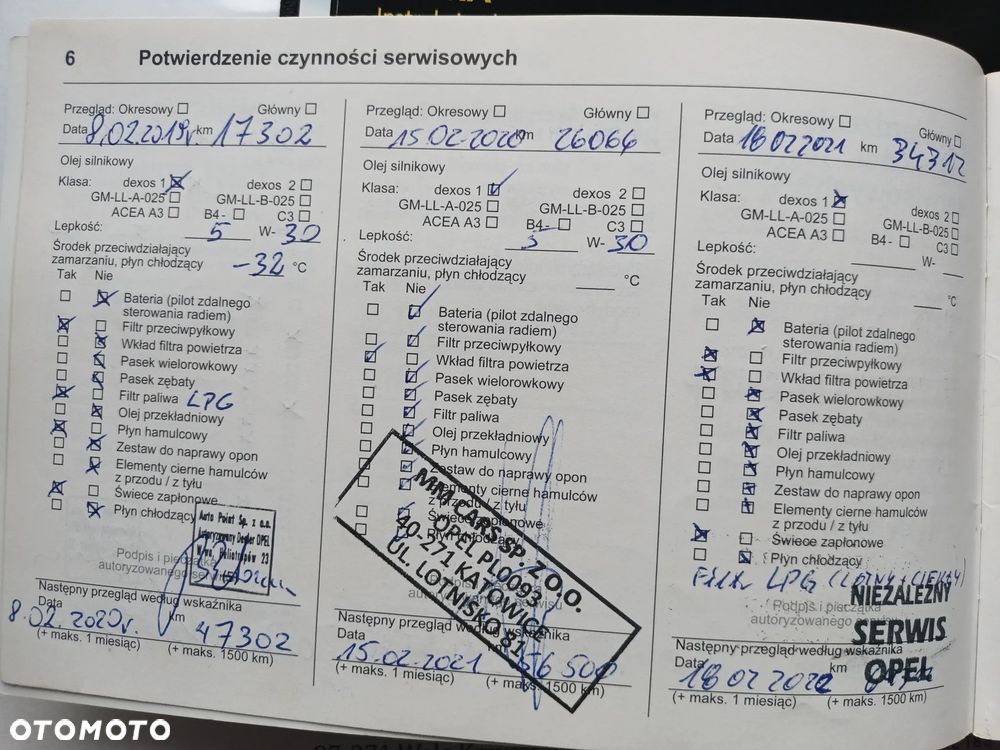 6 Potwierdzenie czynności serwisowych
Przegląd: Okresowy ☐ Główny ☐
Data 8.02.2019r km 17302
Olej silnikowy
Klasa: dexos 1 ☒ dexos 2 ☐
GM-LL-A-025 ☐ GM-LL-B-025 ☐
ACEA A3 ☐ B4 - ☐ C3 ☐
Lepkość: 5 W- 30
Środek przeciwdziałający
zamarzaniu, płyn chłodzący -32 °C
Tak Nie
Bateria (pilot zdalnego
sterowania radiem)
Filtr przeciwpyłkowy
Wkład filtra powietrza
Pasek wielorowkowy
Pasek zębaty
Filtr paliwa LPG
Olej przekładniowy
Płyn hamulcowy
Zestaw do naprawy opon
Elementy cierne hamulców
z przodu / z tyłu
Świece zapłonowe
Płyn chłodzący
Auto Point Sp. z o.o.
Autoryzowany Dealer OPEL
Podpis i pieczątka
autoryzowanego
Następny przegląd według wskaźnika
Data km
8.02.2020r. 47302
(+ maks. 1 miesiąc) (+ maks. 1500 km)
Przegląd: Okresowy ☐ Główny ☐
Data 15.02.2020 km 26066
Olej silnikowy
Klasa: dexos 1 ☑ dexos 2 ☐
GM-LL-A-025 ☐ GM-LL-B-025 ☐
ACEA A3 ☐ B4 - ☐ C3 ☐
Lepkość: 5 W- 30
Środek przeciwdziałający
zamarzaniu, płyn chłodzący °C
Tak Nie
Bateria (pilot zdalnego
sterowania radiem)
Filtr przeciwpyłkowy
Wkład filtra powietrza
Pasek wielorowkowy
Pasek zębaty
Filtr paliwa
Olej przekładniowy
Płyn hamulcowy
Zestaw do naprawy opon
Elementy cierne hamulców
z przodu / z tyłu
Świece zapłonowe
Płyn chłodzący
MM CARS SP. Z O.O.
OPEL PL0093
40-271 KATOWICE
UL. LOTNISKO 81
Następny przegląd według wskaźnika
Data km
15.02.2021 56 500
(+ maks. 1 miesiąc) (+ maks. 1500 km)
Przegląd: Okresowy ☐ Główny ☐
Data 18 02 2021 km 34312
Olej silnikowy
Klasa: dexos 1 ☒ dexos 2 ☐
GM-LL-A-025 ☐ GM-LL-B-025 ☐
ACEA A3 ☐ B4 - ☐ C3 ☐
Lepkość: W-
Środek przeciwdziałający
zamarzaniu, płyn chłodzący °C
Tak Nie
Bateria (pilot zdalnego
sterowania radiem)
Filtr przeciwpyłkowy
Wkład filtra powietrza
Pasek wielorowkowy
Pasek zębaty
Filtr paliwa
Olej przekładniowy
Płyn hamulcowy
Zestaw do naprawy opon
Elementy cierne hamulców
z przodu / z tyłu
Świece zapłonowe
Płyn chłodzący
Filtr LPG (LOTNY + CIEKŁY)
NIEZALEŻNY
SERWIS
OPEL
Podpis i pieczątka
autoryzowanego
Następny przegląd według wskaźnika
Data km
18 02 2022
(+ maks. 1 miesiąc) (+ maks. 1500 km)
OTOMOTO